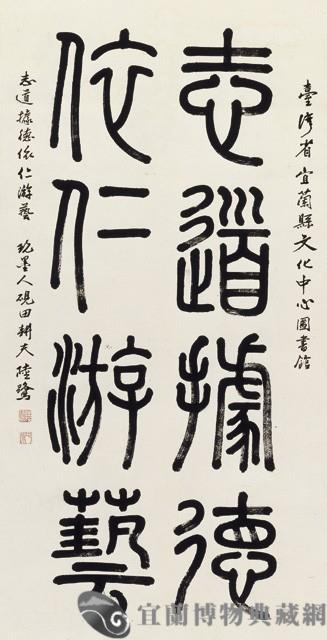 臺灣省宜蘭縣文化中心圖書館
志道據德
依仁游藝
志道據德依仁游藝
玩墨人硯田耕夫陸鷺
宜蘭博物典藏網